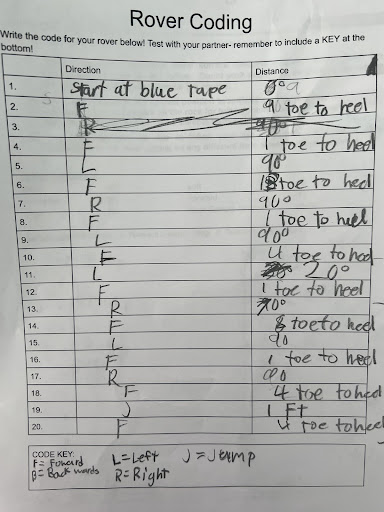 Rover Coding
Write the code for your rover below! Test with your partner- remember to include a KEY at the
bottom!
Direction Distance
1. Start at blue tape 0°
2. F 9 toe to heel
3. R 90°
4. F 1 toe to heel
5. L 90°
6. F toe to heel
7. R 90°
8. F 1 toe to heel
9. L 90°
10. F 4 toe to heel
11. L 20°
12. F 1 toe to heel
13. R 90°
14. F toe to heel
15. L 90
16. F 1 toe to heel
17. R
18. F 4 toe to heel
19. J 1 Ft
20. F 4 toe to heel
CODE KEY:
F= Foward L=Left J=Jump
B= Back wards R=Right